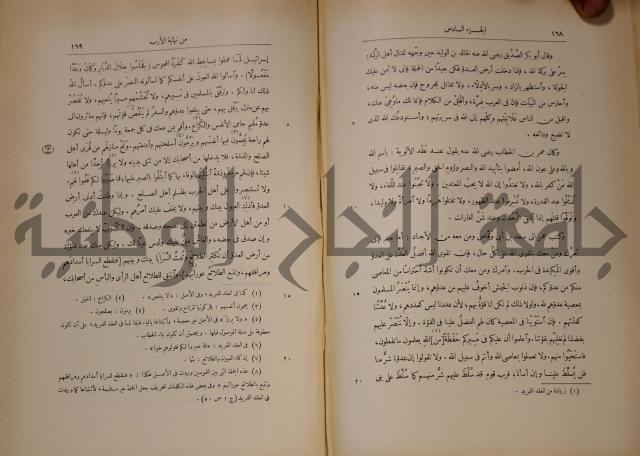 ١٦٨
الجزء السادس
وقال أبو بكر الصدّيق رضى الله عنه لخالد بن الوليد حين وجّهه لقتال أهل الردّة:
سر على بركة الله، فإذا دخلت أرض العدوّ فكن بعيدا من الحملة فإنى لا آمن عليك
الجولة، واستظهر بالزاد، وسر بالأدلّاء، ولا تقاتل بمجروح فإن بعضه ليس منه،
واحترس من البيات فإن فى العرب غرّة، وأقلل من الكلام فإنما لك ما وُعى عنك،
واقبل من الناس علانيتهم وكلهم إلى الله فى سريرتهم؛ وأستودعك الله الذى
لا تضيع ودائعه.
وكان عمر بن الخطاب رضى الله عنه يقول عند عقد الألوية: باسم الله
وبالله وعلى عون الله، أمضوا بتأييد الله والنصر ولزوم الحق والصبر، فقاتلوا فى سبيل
الله من كفر بالله، ولا تعتدوا إن الله لا يحب المعتدين، ولا تجبنوا عند اللقاء، ولا
تمثّلوا عند القدرة، ولا تسرفوا عند الظهور، ولا تقتلوا هرما ولا امرأة ولا وليدا،
وتوقّوا قتلهم إذا التقى الزحفان وعند شنّ الغارات.
وكتب عمر إلى سعد بن أبى وقاص ومن معه من الأجناد: أما بعد فإنى
آمرك ومن معك بتقوى الله على كل حال، فإن تقوى الله أفضل العدّة على العدوّ
وأقوى المكيدة فى الحرب، وآمرك ومن معك أن تكونوا أشدّ احتراسا من المعاصى
منكم من عدوّكم، فإن ذنوب الجيش أخوف عليهم من عدوّهم، وإنما ينصر المسلمون
بمعصية عدوّهم لله، ولولا ذلك لم تكن لنا قوّة بهم، لأن عددنا ليس كعددهم، ولا عدّتنا
كعدّتهم، فإن استوينا فى المعصية كان لهم الفضل علينا فى القوّة، وإلا ننصر عليهم
بفضلنا لم نغلبهم بقوّتنا. واعلموا أن عليكم فى مسيركم حفظة [من] الله يعلمون ما تفعلون،
فاستحيوا منهم، ولا تعملوا بمعاصى الله وأنتم فى سبيل الله، ولا تقولوا إن عدوّنا شرّ منا
فلن يسلّط علينا وإن أسأنا، فرب قوم قد سلّط عليهم شرّ منهم كما سلّط على بنى
(١) زيادة من العقد الفريد.
من نهاية الأرب
١٦٩
إسرائيل لمّا عملوا بمساخط الله كفرة المجوس (فجاسوا خلال الديار وكان وعدا
مفعولا). واسألوا الله العون على أنفسكم كما تسألونه النصر على عدوّكم. أسأل الله
ذلك لنا ولكم. وترفّق بالمسلمين فى مسيرهم، ولا تجشّمهم مسيرا يتعبهم، ولا تقصّر
بهم عن منزل يرفق بهم، حتى يبلغوا عدوّهم والسفر لم ينقص قوّتهم، فإنهم سائرون إلى
عدوّ مقيم حامى الأنفس والكراع. وأقم بمن معك فى كل جمعة يوما وليلة حتى تكون
لهم راحة يُجمّون فيها أنفسهم ويرمّون أسلحتهم وأمتعتهم، ونحّ منازلهم عن قرى أهل
الصلح والذمّة، فلا يدخلها من أصحابك إلا من تثق بدينه ولا
ولا تستنصروا على أهل الحرب بظلم أهل الصلح. وإذا وطئت أدنى أرض
العدوّ فأذك العيون بينك وبينهم، ولا يخف عليك أمرهم، وليكن عندك من العرب
أو من أهل الأرض من تطمئن إلى نصحه وصدقه، فإن الكذوب لا ينفعك خبره
وإن صدق فى بعضه، والغاش عين عليك وليس عينا لك. وليكن منك عند دنوّك
من أرض العدوّ أن تكثر الطلائع وتبثّ السرايا بينك وبينهم، فتقطع السرايا أمدادهم
ومرافقهم، وتتبع الطلائع عوراتهم. وانتق للطلائع أهل الرأى والبأس من أصحابك،
(١) كذا فى العقد الفريد؛ وفى الأصل: «لا ينقص». (٢) الكراع: الخيل.
(٣) يجمون أنفسهم: يتركونها لترتاح وتقوى. (٤) يرمون: يصلحون.
(٦) فى العقد الفريد: «فما صبروا لكم فتولوهم خيرا».
(٧) إذكاء العيون والطلائع: بثها.
فى العقد الفريد (ج ١ ص ٥٠).
جامعة النجاح الوطنية